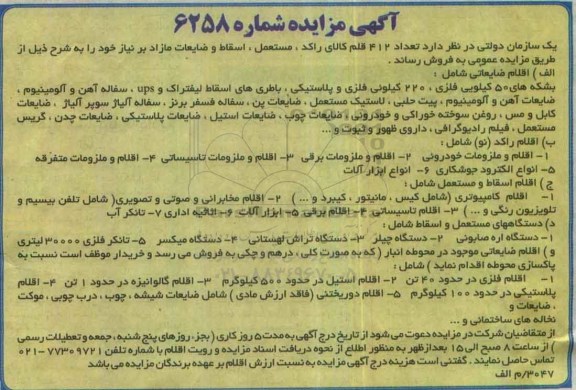 آگهی مزایده شماره ۶۲۵۸
یک سازمان دولتی در نظر دارد تعداد ۴۱۲ قلم کالای راکد ، مستعمل ، اسقاط و ضایعات مازاد بر نیاز خود را به شرح ذیل از
طریق مزایده عمومی به فروش رساند .
الف ) اقلام ضایعاتی شامل :
بشکه های ۵۰ کیلویی فلزی ، ۲۲۰ کیلوئی فلزی و پلاستیکی ، باطری های اسقاط لیفتراک و ups ، سفاله آهن و آلومینیوم ،
ضایعات آهن و آلومینیوم ، پیت حلبی ، لاستیک مستعمل ، ضایعات پن ، سفاله فسفر برنز ، سفاله آلیاژ سوپر آلیاژ ، ضایعات
کابل و مس ، روغن سوخته خوراکی و خودرونی ، ضایعات چوب ، ضایعات استیل ، ضایعات پلاستیکی ، ضایعات چدن ، گریس
مستعمل ، فیلم رادیوگرافی ، داروی ظهور و ثبوت و ...
ب) اقلام راکد (نو) شامل :
۱- اقلام و ملزومات خودرونی ۲- اقلام و ملزومات برقی ۳- اقلام و ملزومات تاسیساتی ۴- اقلام و ملزومات متفرقه
۵- انواع الکترود جوشکاری ۶- انواع ابزار آلات
ج ) اقلام اسقاط و مستعمل شامل :
۱- اقلام کامپیوتری (شامل کیس ، مانیتور ، کیبرد و ... ) ۲- اقلام مخابراتی و صوتی و تصویری( شامل تلفن بیسیم و
تلویزیون رنگی و ... ) ۳- اقلام تاسیساتی ۴- اقلام برقی ۵- ابزار آلات ۶- اثاثیه اداری ۷- تانکر آب
د) دستگاههای مستعمل و اسقاط شامل :
۱- دستگاه اره صابونی ۲- دستگاه چیلر ۳- دستگاه تراش لهستانی ۴- دستگاه میکسر ۵- تانکر فلزی ۳۰۰۰۰ لیتری
و ) اقلام ضایعاتی موجود در محوطه انبار ( که به صورت کلی ، درهم و چکی به فروش می رسد و خریدار موظف است نسبت به
پاکسازی محوطه اقدام نماید ) شامل :
۱- اقلام فلزی در حدود ۴۰ تن ۲- اقلام استیل در حدود ۵۰۰ کیلوگرم ۳- اقلام گالوانیزه در حدود ۱ تن ۴- اقلام
پلاستیکی در حدود ۱۰۰ کیلوگرم ۵- اقلام دورریختنی (فاقد ارزش مادی ) شامل ضایعات شیشه ، چوب ، درب چوبی ، موکت
، ضایعات و
نخاله های ساختمانی و ...
از متقاضیان شرکت در مزایده دعوت می شود از تاریخ درج آگهی به مدت ۵ روز کاری ( بجز، روزهای پنج شنبه ، جمعه و تعطیلات رسمی
) از ساعت ۸ صبح الی ۱۵ بعدازظهر به منظور اطلاع از نحوه دریافت اسناد مزایده و رویت اقلام با شماره تلفن ۷۷۳۰۹۷۲۱-۰۲۱
تماس حاصل نمایند . گفتنی است هزینه درج آگهی مزایده به نسبت ارزش اقلام بر عهده برندگان مزایده می باشد
۳۰۴۷/م الف